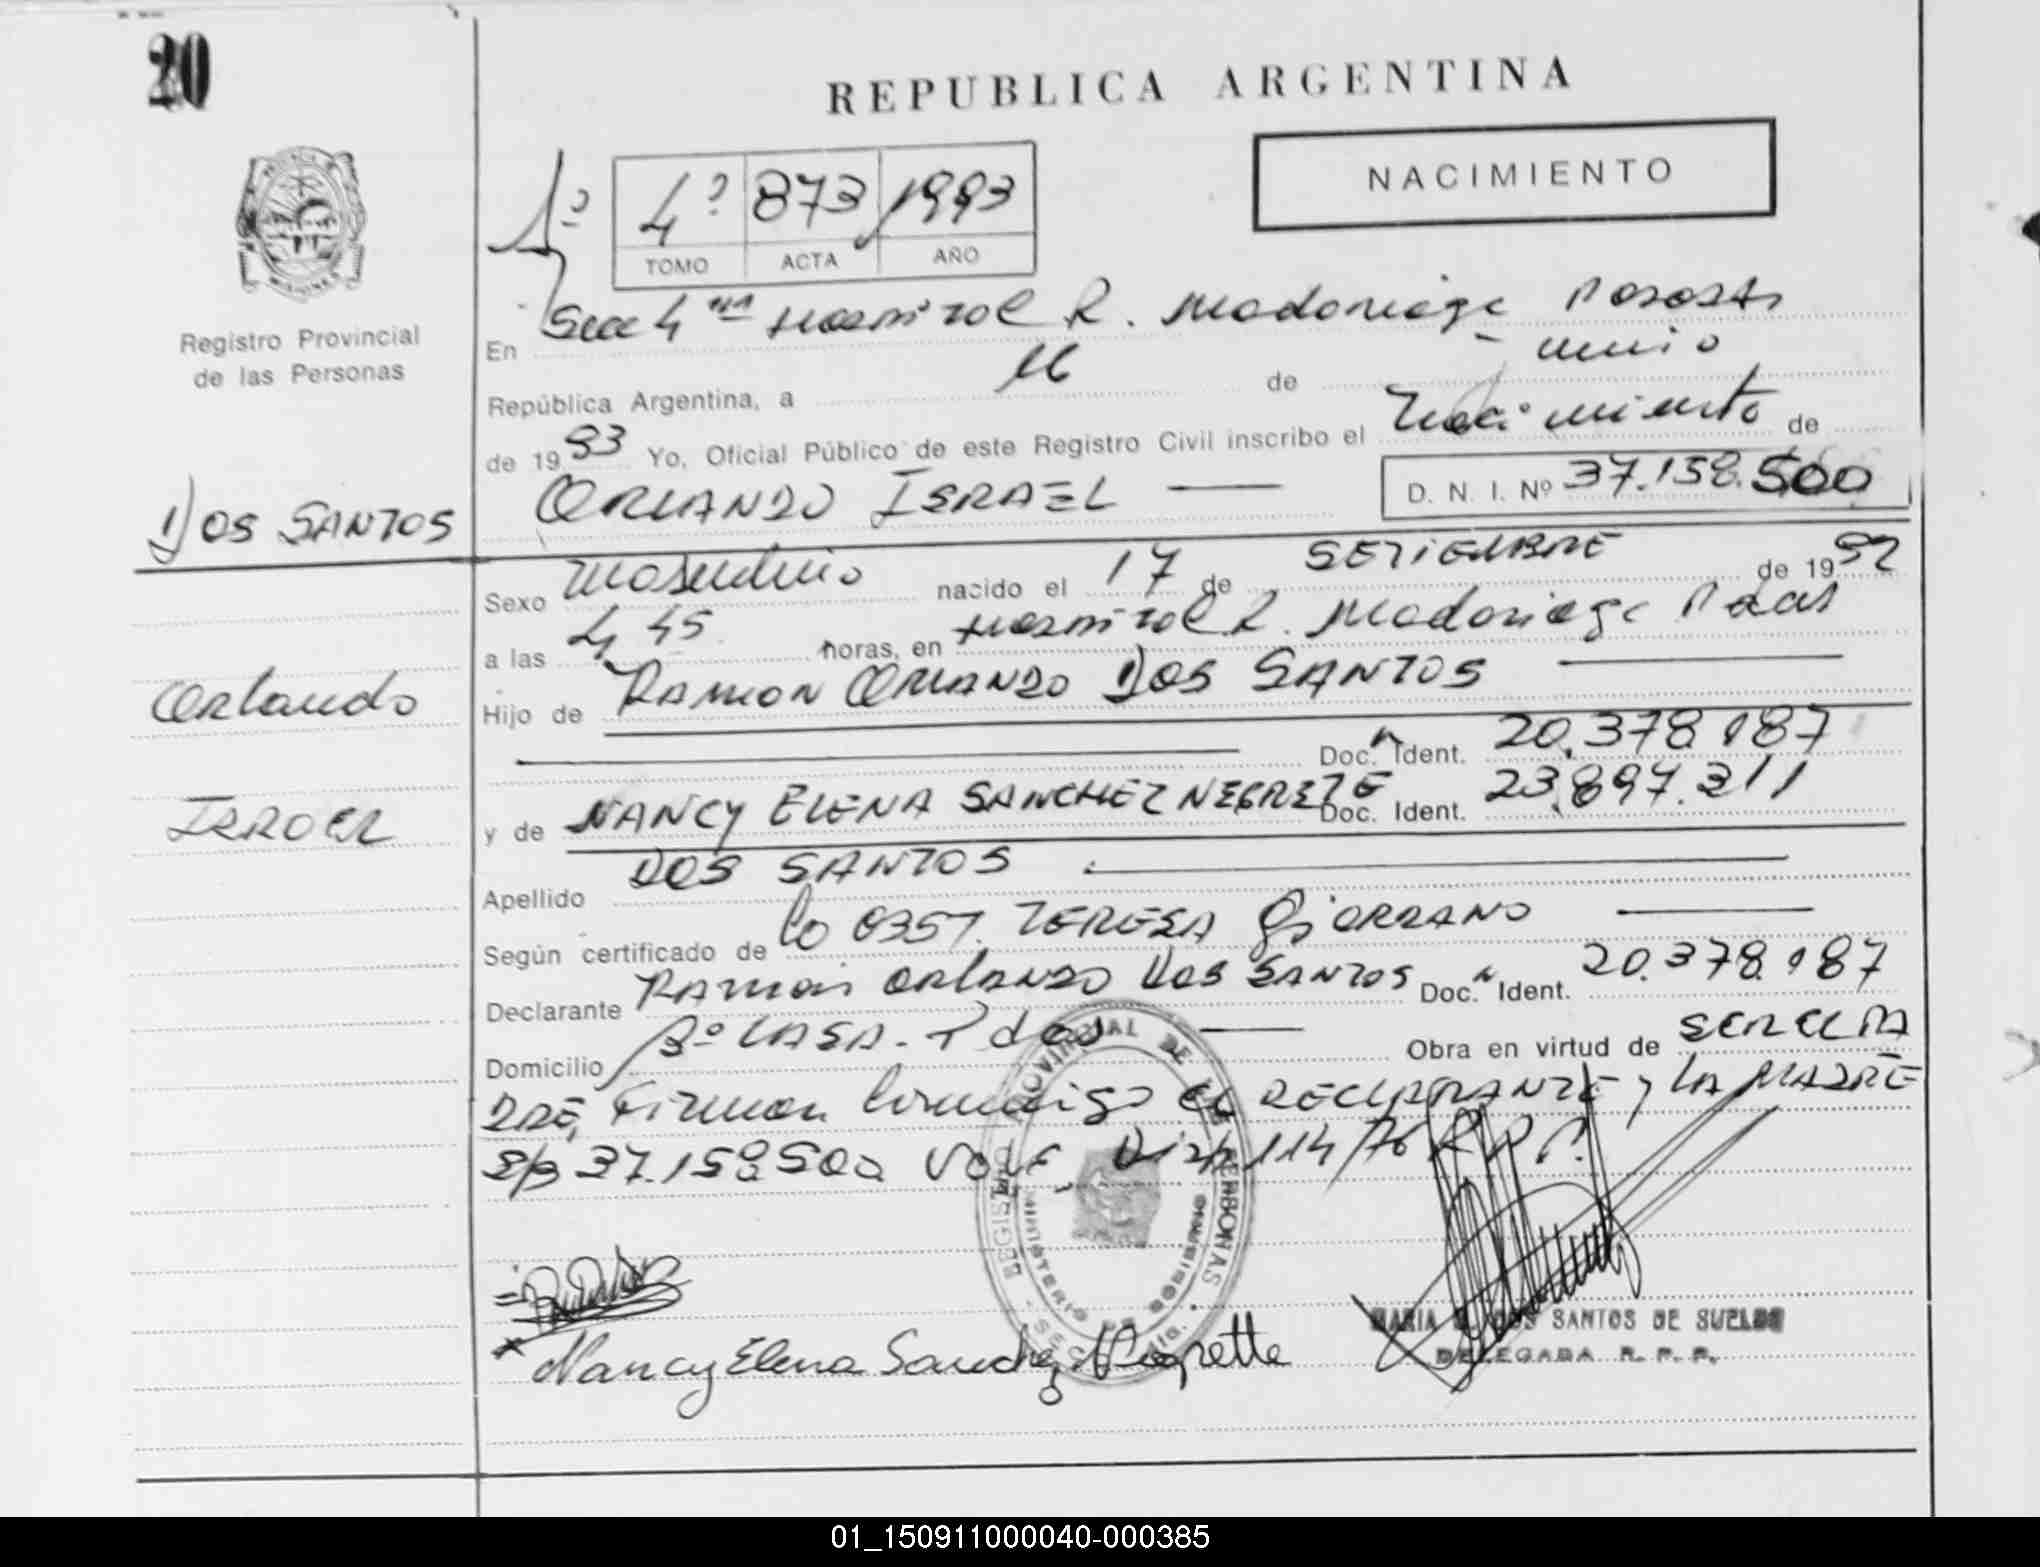 20
REPUBLICA ARGENTINA
NACIMIENTO
1º
4º 873 1993
TOMO ACTA AÑO
MISIONES
Registro Provincial
de las Personas
En Secc 4ta Hospital R. Madariaga Posadas
República Argentina, a 16 de Junio
de 1993 Yo, Oficial Público de este Registro Civil inscribo el Nacimiento de
ORLANDO ISRAEL D. N. I. Nº 37.158.500
DOS SANTOS
Sexo Masculino nacido el 17 de SETIEMBRE de 1992
a las 4,45 horas, en Hospital R. Madariaga Pdas
Orlando
Hijo de RAMON ORLANDO DOS SANTOS
Doc. Ident. 20.378.187
Israel
y de NANCY ELENA SANCHEZ NEGRETE Doc. Ident. 23.897.311
Apellido DOS SANTOS
Según certificado de TERESA GIORDANO
Declarante Ramón Orlando Dos Santos Doc. Ident. 20.378.187
Domicilio CASA - Pdas Obra en virtud de SER EL PA
DRE, Firman Conmigo el DECLARANTE y LA MADRE
37.158.500 Vale Disp 114/76 R.P.P.
REGISTRO PROVINCIAL DE LAS PERSONAS
MINISTERIO DE GOBIERNO
Nancy Elena Sanchez Negrette
MARIA DOS SANTOS DE SUELDO
DELEGADA R. P. P.
01_150911000040-000385